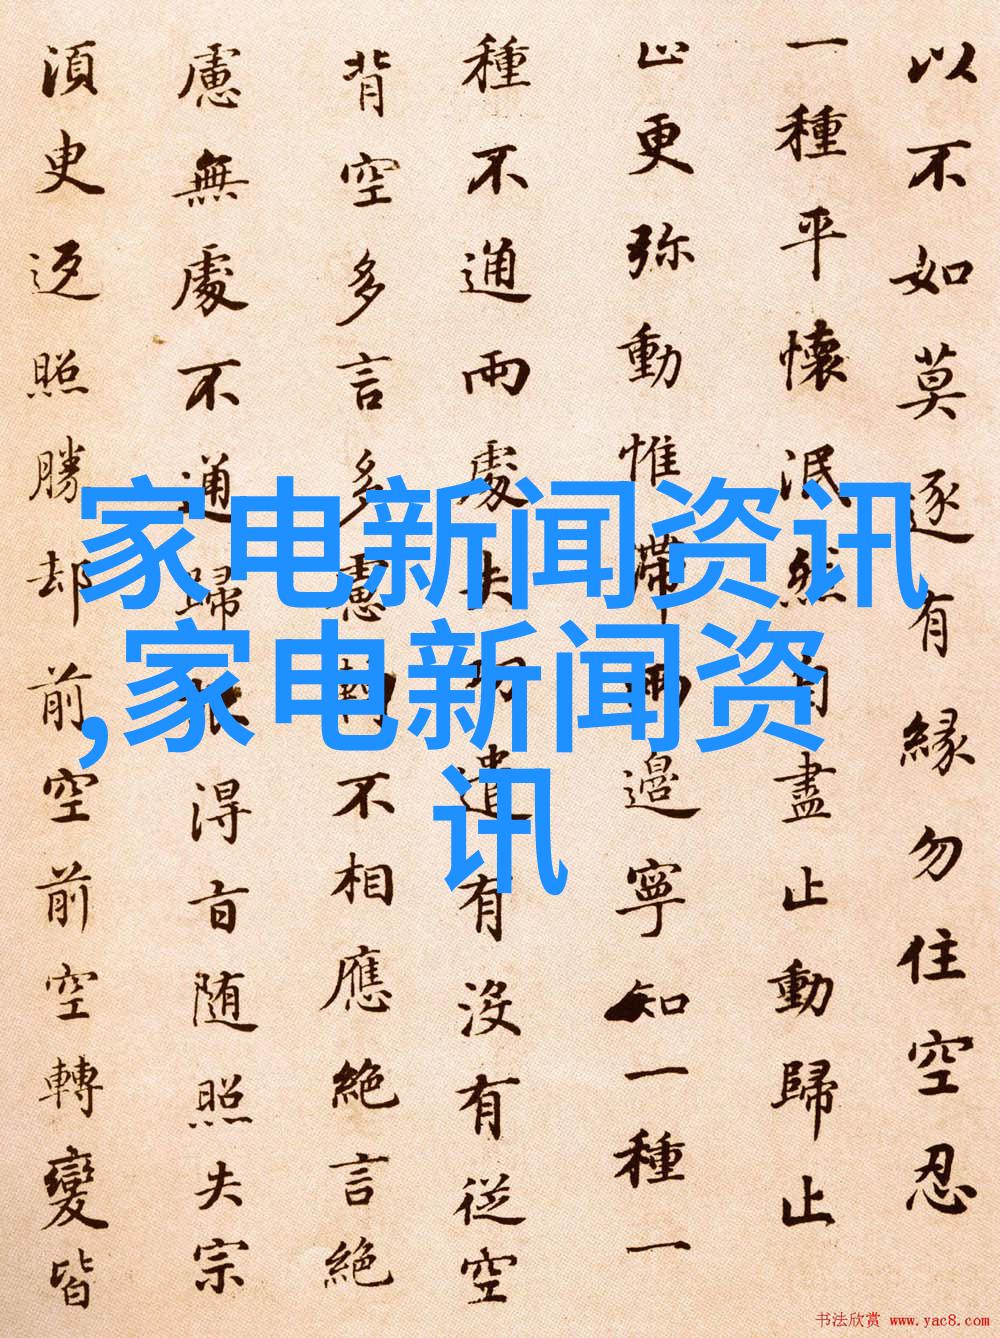 以不如莫逐有縁勿住空忍
一種平懷泯然自盡止動歸止
止更弥動惟滯兩邊寧知一種一
種不通兩處失功遣有沒有從空
背空多言多慮轉不相應絶言絶
慮無處不通歸根得旨随照失宗
須臾返照勝却前空前空轉變皆
家电新闻资讯
,家电新闻资
讯
书法欣赏 www.yac8.com